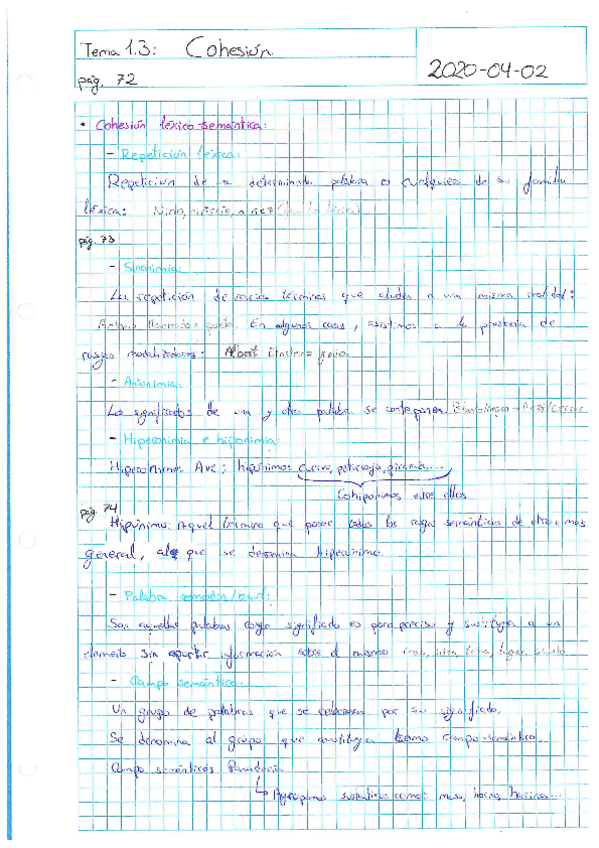 Tema 1.3: Cohesión
pág. 72
2020-04-02
• Cohesión léxico-semántica:
- Repetición léxica:
Repetición de determinada palabra o cualquiera de su familia
léxica:
pág. 73
- Sinonimia:
La repetición de varios términos que aluden a una misma realidad:
Antonio poeta. En algunos casos, asistimos a la presencia de
rasgos modalizadores: Albert Einstein = genio
- Antonimia:
Los significados de una y otra palabra se contraponen
- Hiperonimia e hiponimia:
Hiperónimos Ave; hipónimos cuervo, petirrojo,
Cohipónimos entre ellos
pág. 74
Hipónimo: Aquel término que posee todos los rasgos semánticos de otro más
general, al que se denomina hiperónimo.
- Palabra comodín/
Son aquellas palabras cuyo significado es poco preciso y sustituyen a un
elemento sin aportar información sobre el mismo cosa, tema, lugar
- Campo semántico:
Un grupo de palabras que se relacionan por su significado.
Se denomina al grupo que constituyen como campo semántico.
Campo semánticos Panadería
↳ Agrupamos sustantivos como: masa, horno, harina...